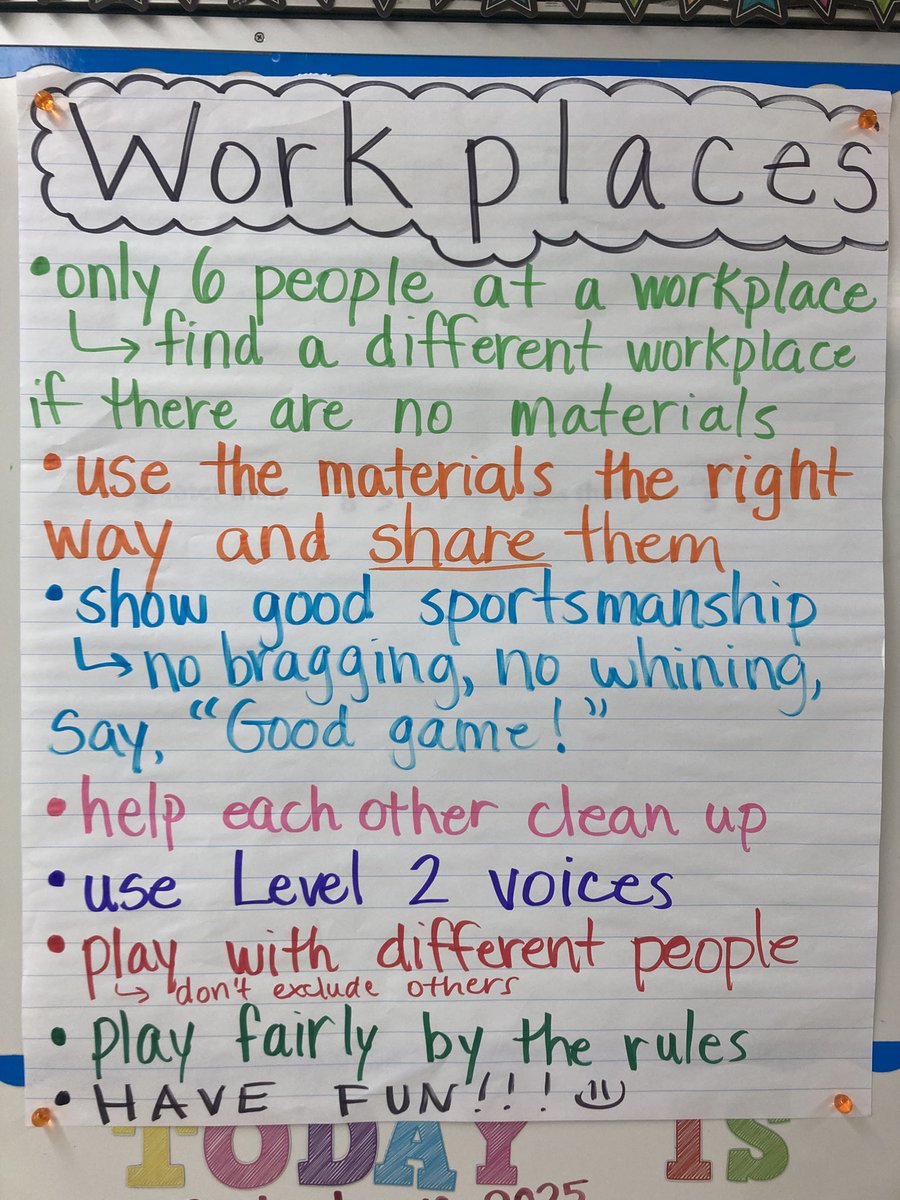 Workplaces
•only 6 people at a workplace
↳ find a different workplace
if there are no materials
•use the materials the right
way and share them
•show good sportsmanship
↳ no bragging, no whining,
say, "Good game!"
•help each other clean up
•use Level 2 voices
•play with different people
↳ don't exclude others
•play fairly by the rules
•HAVE FUN!!!
TODAY IS
2025